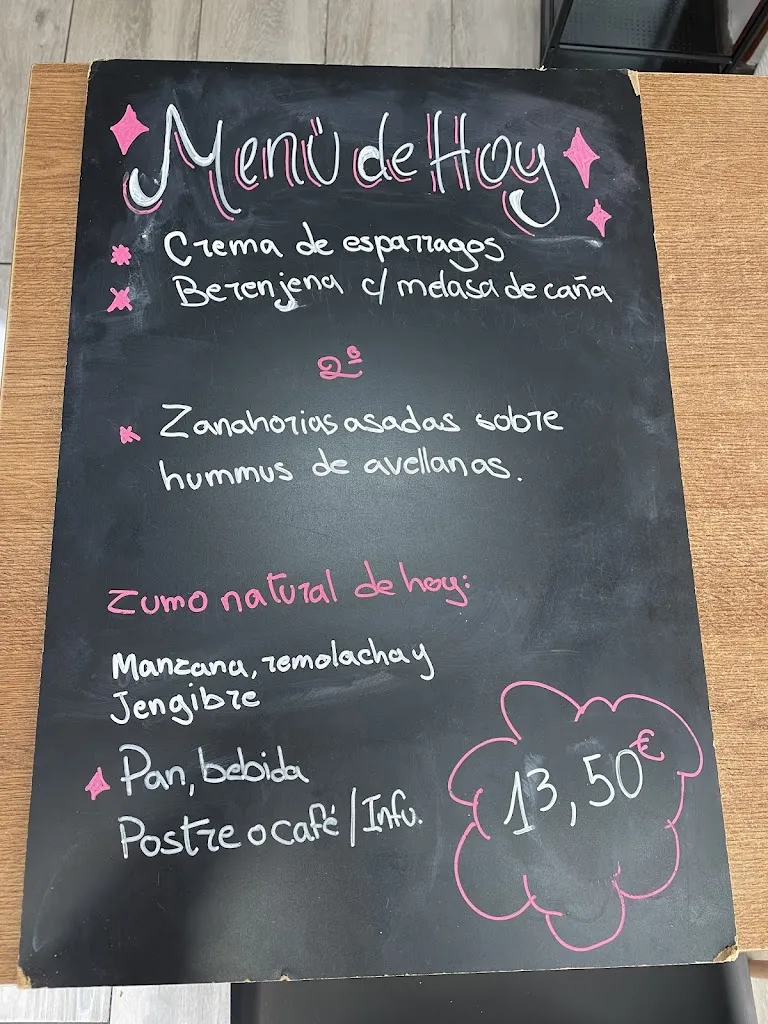 Menü de Hoy
Crema de esparragos
Berenjena c/ melasa de caña
2º
Zanahorias asadas sobre
hummus de avellanas.
Zumo natural de hoy:
Manzana, remolacha y
Jengibre
Pan, bebida
Postre o café / Infu.
13,50€